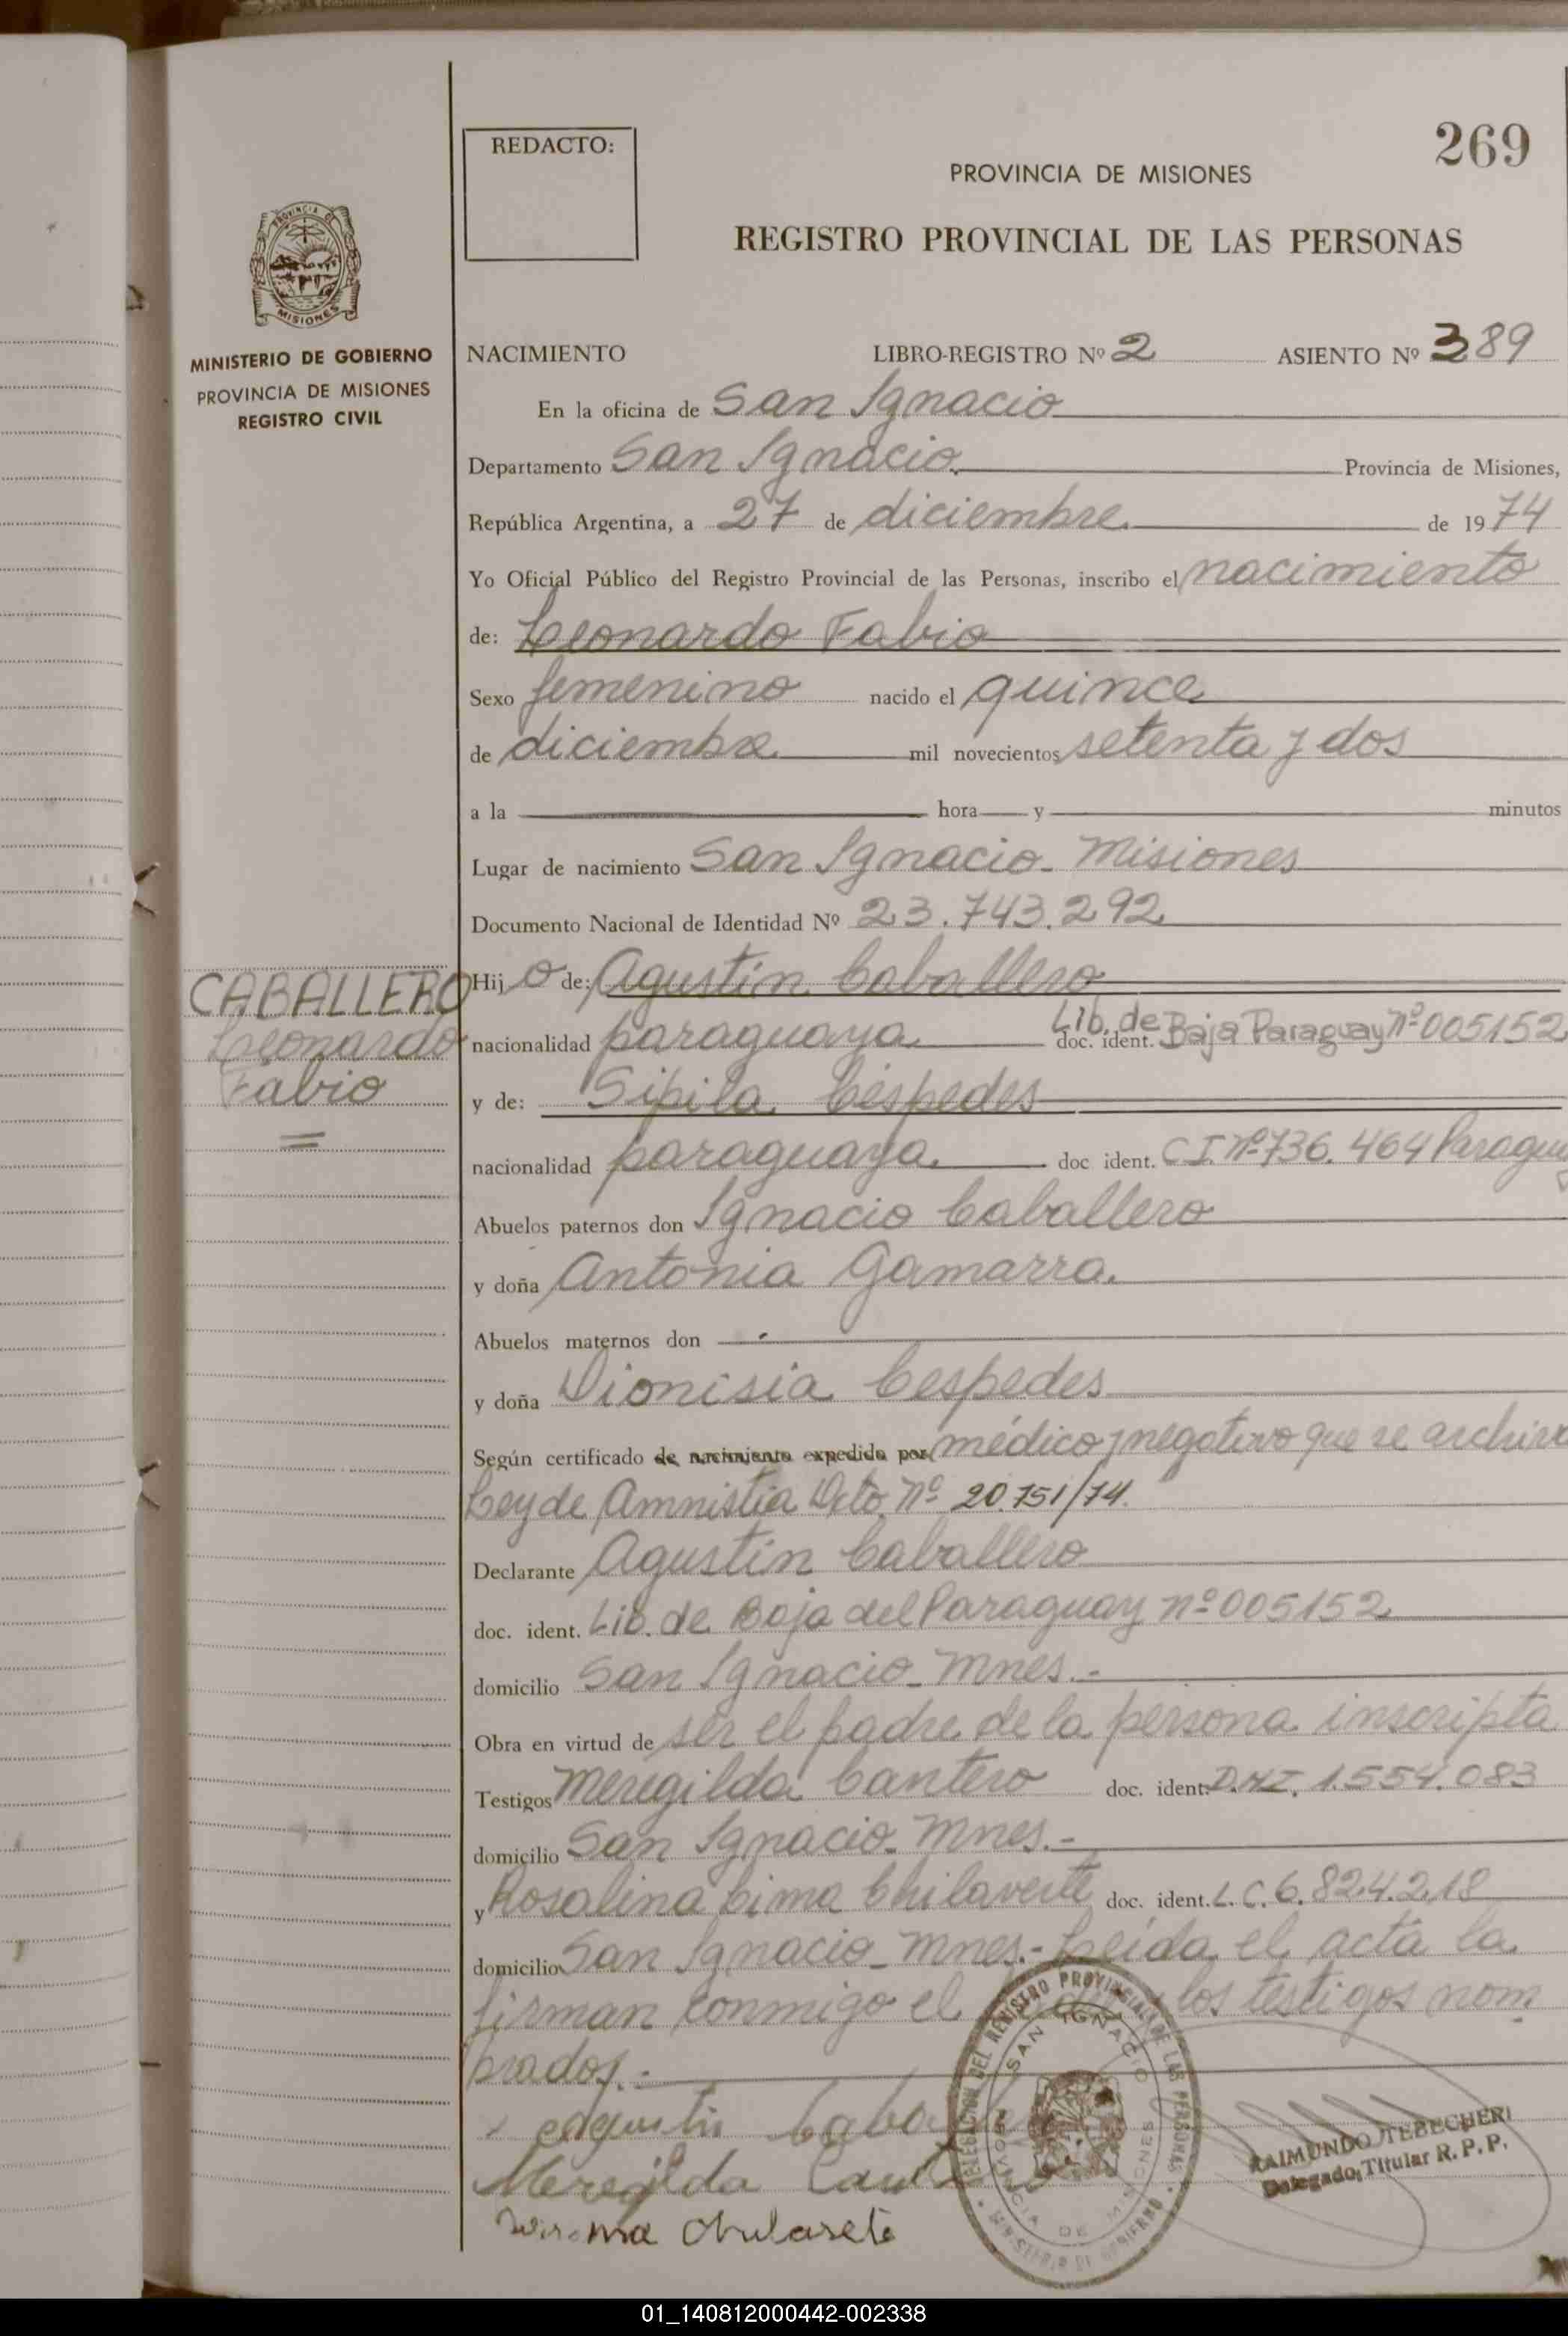 269
REDACTO:
PROVINCIA DE MISIONES
REGISTRO PROVINCIAL DE LAS PERSONAS
PROVINCIA DE
MISIONES
MINISTERIO DE GOBIERNO
PROVINCIA DE MISIONES
REGISTRO CIVIL
NACIMIENTO LIBRO-REGISTRO Nº 2 ASIENTO Nº 389
En la oficina de San Ignacio
Departamento San Ignacio. Provincia de Misiones,
República Argentina, a 27 de diciembre. de 1974
Yo Oficial Público del Registro Provincial de las Personas, inscribo el nacimiento
de: Leonardo Fabio
Sexo femenino nacido el quince
de diciembre mil novecientos setenta y dos
a la hora y minutos
Lugar de nacimiento San Ignacio - Misiones
Documento Nacional de Identidad Nº 23.743.292
CABALLERO
Leonardo
Fabio
Hijo de: Agustin Caballero
nacionalidad paraguaya. doc. ident. Lib. de Baja Paraguay nº 005152
y de: Sipila Céspedes
nacionalidad paraguaya. doc ident. C I. nº 736.464 Paraguay
Abuelos paternos don Ignacio Caballero
y doña Antonia Gamarra.
Abuelos maternos don
y doña Dionisia Cespedes
Según certificado de nacimiento expedido por médico y negativo que se archiva
Ley de Amnistia Dcto. nº 20.751/74.
Declarante Agustin Caballero
doc. ident. Lib. de Baja del Paraguay nº 005152
domicilio San Ignacio - Mnes.-
Obra en virtud de ser el padre de la persona inscripta
Testigos Meregilda Cantero doc. ident. D.N.I. 1.554.083
domicilio San Ignacio - Mnes.-
y Rosalina Cima Chilavert doc. ident. L.C. 6.824.218
domicilio San Ignacio - Mnes.- Leída el acta la
firman conmigo el los testigos nom
brados.-
Agustin Caba
Meregilda Cantero
DELEGACION DEL REGISTRO PROVINCIAL DE LAS PERSONAS
SAN IGNACIO
PROVINCIA DE MISIONES
MINISTERIO DE GOBIERNO
RAIMUNDO TEBECHERI
Delegado Titular R. P. P.
01_140812000442-002338